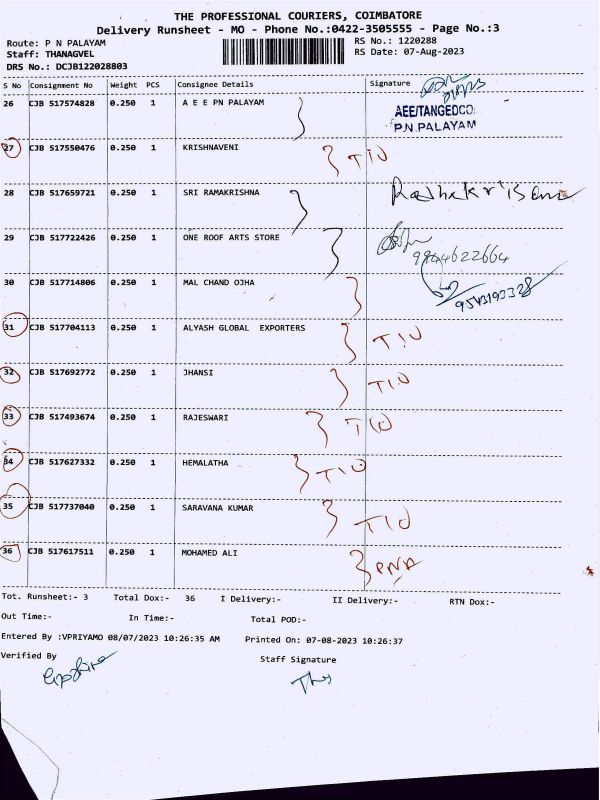 THE PROFESSIONAL COURIERS, COIMBATORE
Delivery Runsheet - MO - Phone No.:0422-3505555 - Page No.:3
Route: P N PALAYAM RS No.: 1220288
Staff: THANAGVEL RS Date: 07-Aug-2023
DRS No.: DCJB122028803
S No Consignment No Weight PCS Consignee Details Signature
26 CJB 517574828 0.250 1 A E E PN PALAYAM
AEE/TANGEDCO.
P.N.PALAYAM
27 CJB 517550476 0.250 1 KRISHNAVENI TIO
28 CJB 517659721 0.250 1 SRI RAMAKRISHNA
29 CJB 517722426 0.250 1 ONE ROOF ARTS STORE
9944622664
30 CJB 517714806 0.250 1 MAL CHAND OJHA
9543193328
31 CJB 517704113 0.250 1 ALYASH GLOBAL EXPORTERS TIO
32 CJB 517692772 0.250 1 JHANSI TIO
33 CJB 517493674 0.250 1 RAJESWARI TIO
34 CJB 517627332 0.250 1 HEMALATHA TIO
35 CJB 517737040 0.250 1 SARAVANA KUMAR TIO
36 CJB 517617511 0.250 1 MOHAMED ALI PNA
Tot. Runsheet:- 3 Total Dox:- 36 I Delivery:- II Delivery:- RTN Dox:-
Out Time:- In Time:- Total POD:-
Entered By :VPRIYAMO 08/07/2023 10:26:35 AM Printed On: 07-08-2023 10:26:37
Verified By Staff Signature